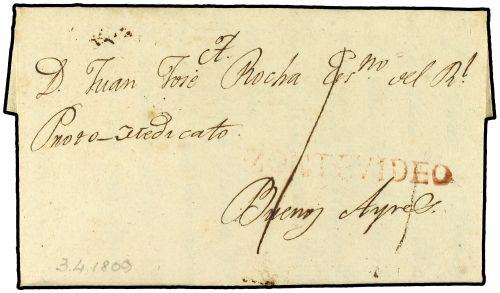 A.
D. Juan Jose Rocha Es.no del R.l
Proto-Medicato.
MONTEVIDEO
Buenos Ayres.
3.4.1809